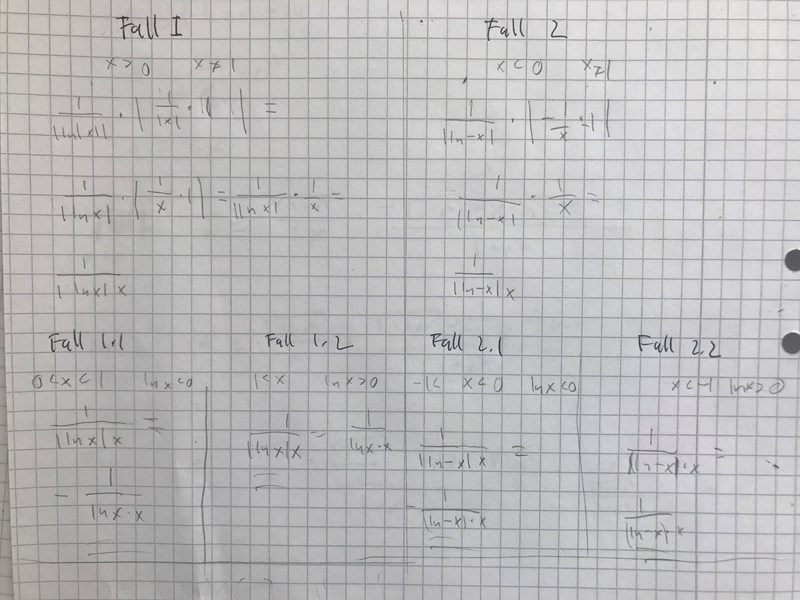 Fall I
x > 0 x ≠ 1
1/|ln|x|| · | 1/|x| · 1 | =
1/|ln x| · | 1/x · 1 | = 1/|ln x| · 1/x =
1/|ln x| x
Fall 2
x < 0 x ≠ 1
1/|ln -x| · | -1/x · 1 |
1/|ln -x| · 1/x =
1/|ln -x| x
Fall 1.1
0 < x < 1 ln x < 0
1/|ln x| x =
- 1/ln x · x
Fall 1.2
1 < x ln x > 0
1/|ln x| x = 1/ln x · x
Fall 2.1
-1 < x < 0 ln x < 0
1/|ln -x| x =
- 1/(ln -x) · x
Fall 2.2
x < -1 ln x > 0
1/|ln -x| · x =
1/(ln -x) · x